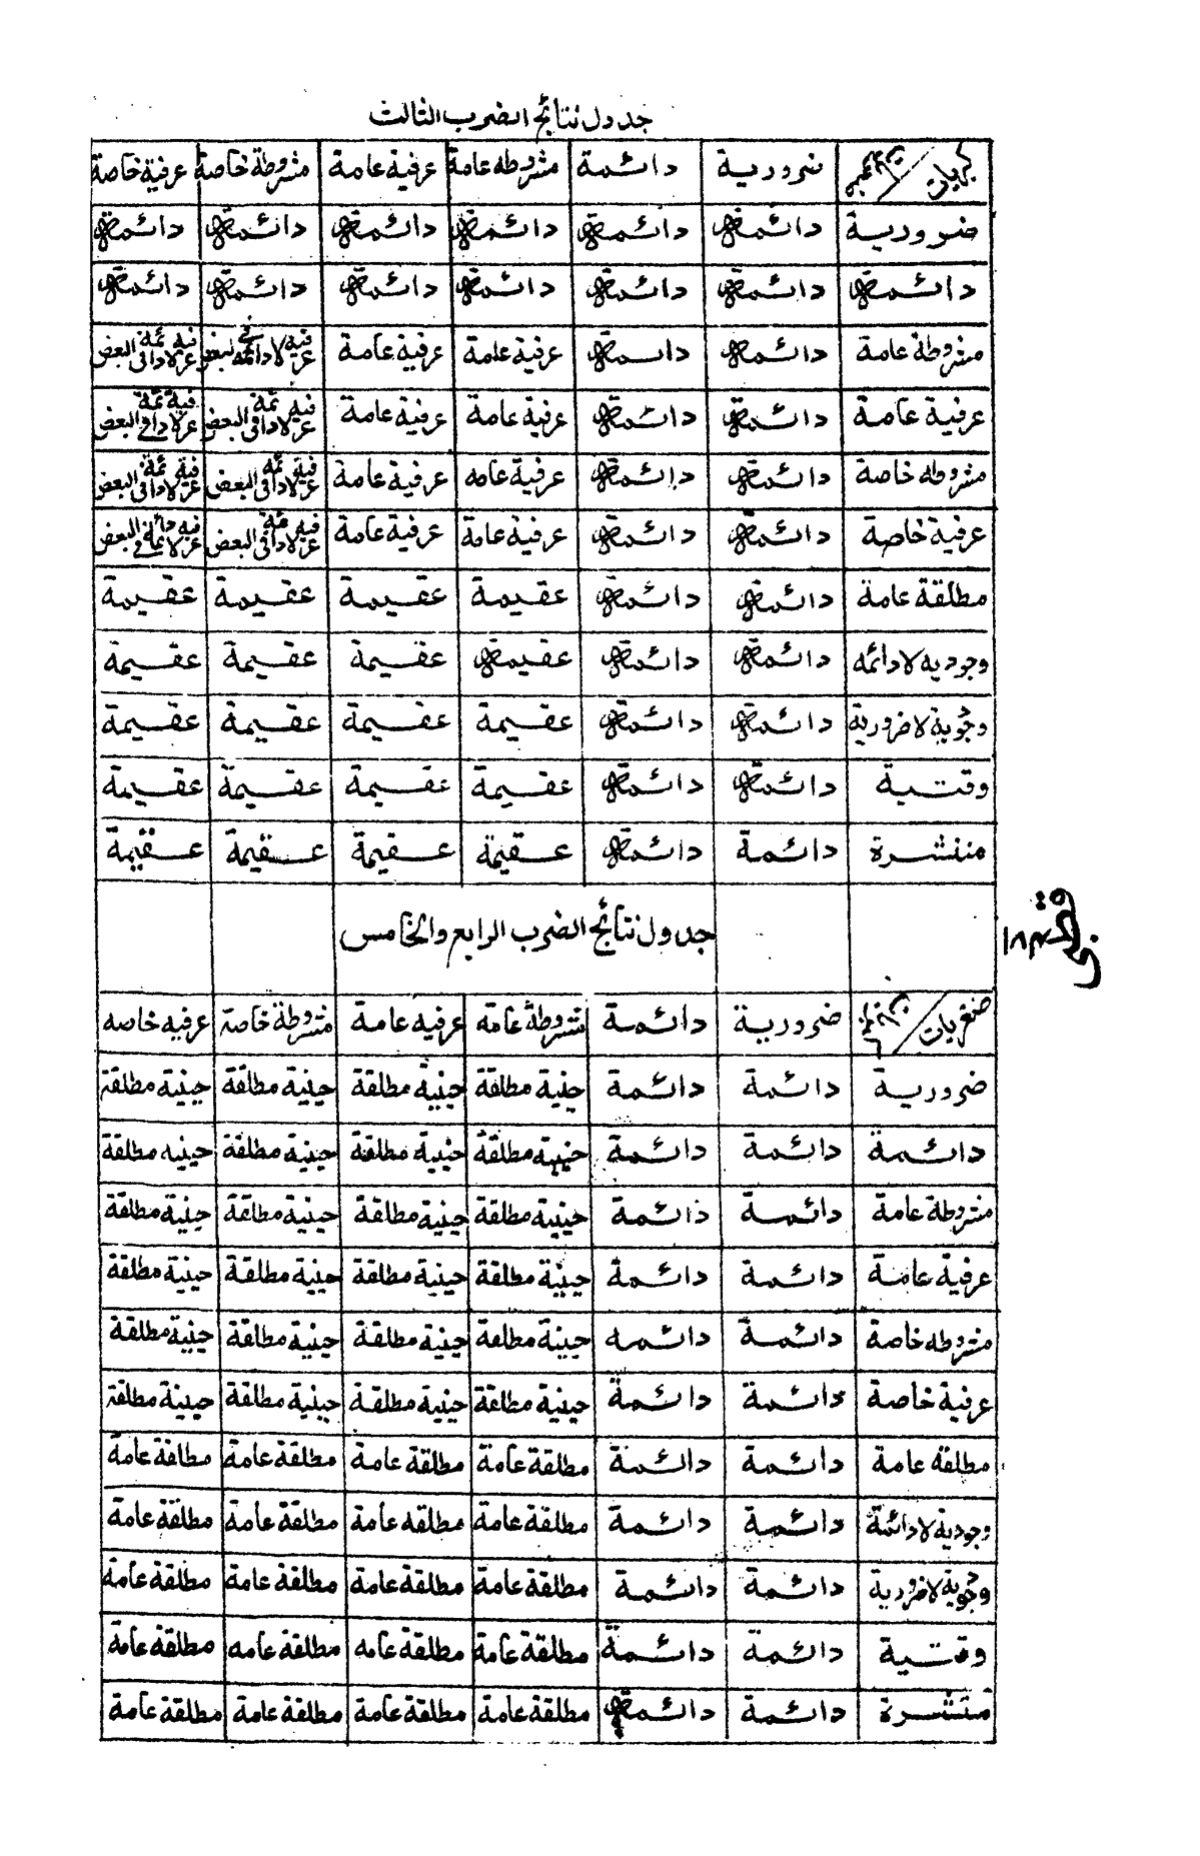 جدول نتائج الضرب الثالث
كبريات ضرورية دائمة مشروطه عامة عرفية عامة مشروطة خاصة عرفية خاصة
ضرورية دائمة دائمة دائمة دائمة دائمة دائمة
دائمة دائمة دائمة دائمة دائمة دائمة دائمة
مشروطة عامة دائمة دائمة عرفية عامة عرفية عامة عرفية لادائمة فى البعض عرفية لادائمة فى البعض
عرفية عامة دائمة دائمة عرفية عامة عرفية عامة عرفية لادائمة فى البعض عرفية لادائمة فى البعض
مشروطه خاصة دائمة دائمة عرفية عامه عرفية عامة عرفية لادائمة فى البعض عرفية لادائمة فى البعض
عرفية خاصة دائمة دائمة عرفية عامة عرفية عامة عرفيه لادائمة فى البعض عرفيه لادائمة فى البعض
مطلقة عامة دائمة دائمة عقيمة عقيمة عقيمة عقيمة
وجوديه لادائمه دائمة دائمة عقيمة عقيمة عقيمة عقيمة
وجودية لاضرورية دائمة دائمة عقيمة عقيمة عقيمة عقيمة
وقتية دائمة دائمة عقيمة عقيمة عقيمة عقيمة
منتشرة دائمة دائمة عقيمة عقيمة عقيمة عقيمة
جدول نتائج الضرب الرابع والخامس
صغريات ضرورية دائمة مشروطة عامة عرفيه عامة مشروطة خاصة عرفيه خاصه
ضرورية دائمة دائمة حينية مطلقة حينية مطلقة حينية مطلقة حينية مطلقة
دائمة دائمة دائمة حينية مطلقة حينية مطلقة حينية مطلقة حينيه مطلقة
مشروطة عامة دائمة دائمة حينية مطلقة حينية مطلقة حينية مطلقة حينية مطلقة
عرفية عامة دائمة دائمة حينية مطلقة حينية مطلقة حينية مطلقة حينية مطلقة
مشروطه خاصة دائمة دائمه حينية مطلقة حينية مطلقة حينية مطلقة حينية مطلقة
عرفية خاصة دائمة دائمة حينية مطلقة حينية مطلقة حينية مطلقة حينية مطلقة
مطلقة عامة دائمة دائمة مطلقة عامة مطلقة عامة مطلقة عامة مطلقة عامة
وجودية لادائمة دائمة دائمة مطلقة عامة مطلقه عامة مطلقة عامة مطلقة عامة
وجودية لاضرورية دائمة دائمة مطلقة عامة مطلقة عامة مطلقة عامة مطلقة عامة
وقتية دائمة دائمة مطلقة عامة مطلقة عامه مطلقة عامه مطلقة عامة
منتشرة دائمة دائمة مطلقة عامة مطلقة عامة مطلقة عامة مطلقة عامة